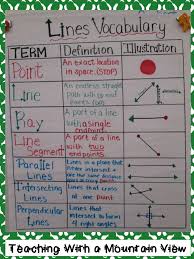 Lines Vocabulary
TERM Definition Illustration
Point An exact location
in space. (STOP)
Line An endless straight
path with no end
points
Ray A part of a line
with a single
endpoint.
Line
Segment A part of a line
with two
endpoints
Parallel
Lines Lines in a plane that
never intersect + are
the same distance
Intersecting
Lines Lines that cross
at one point.
Perpendicular
Lines Lines that
intersect to form
4 right angles.
Teaching With a Mountain View